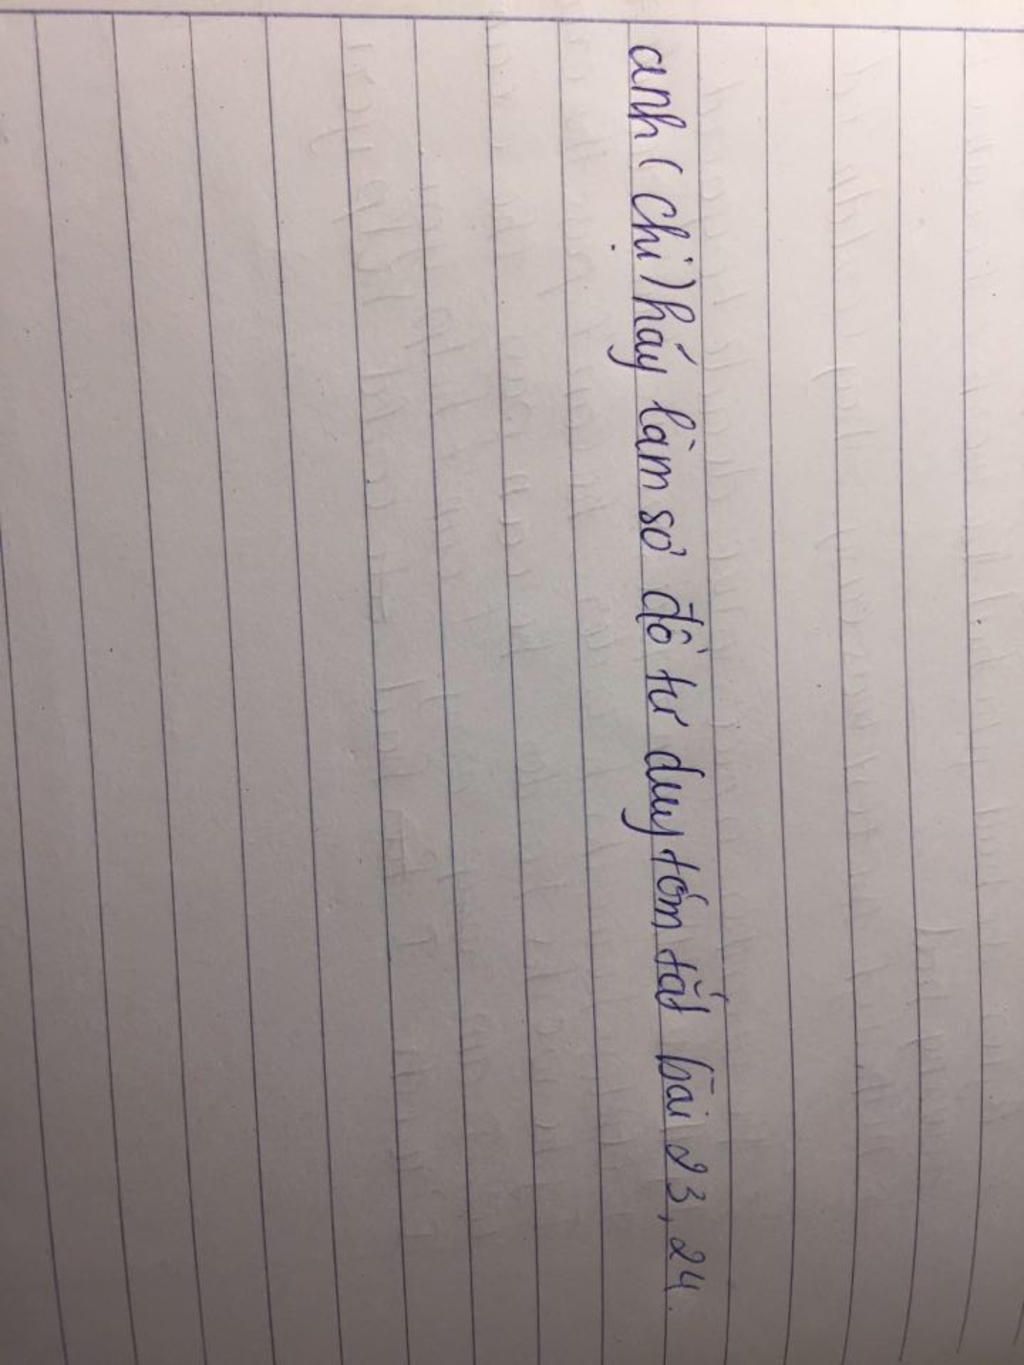 anh (chị) hãy làm sơ đồ tư duy tóm tắt bài 23, 24.